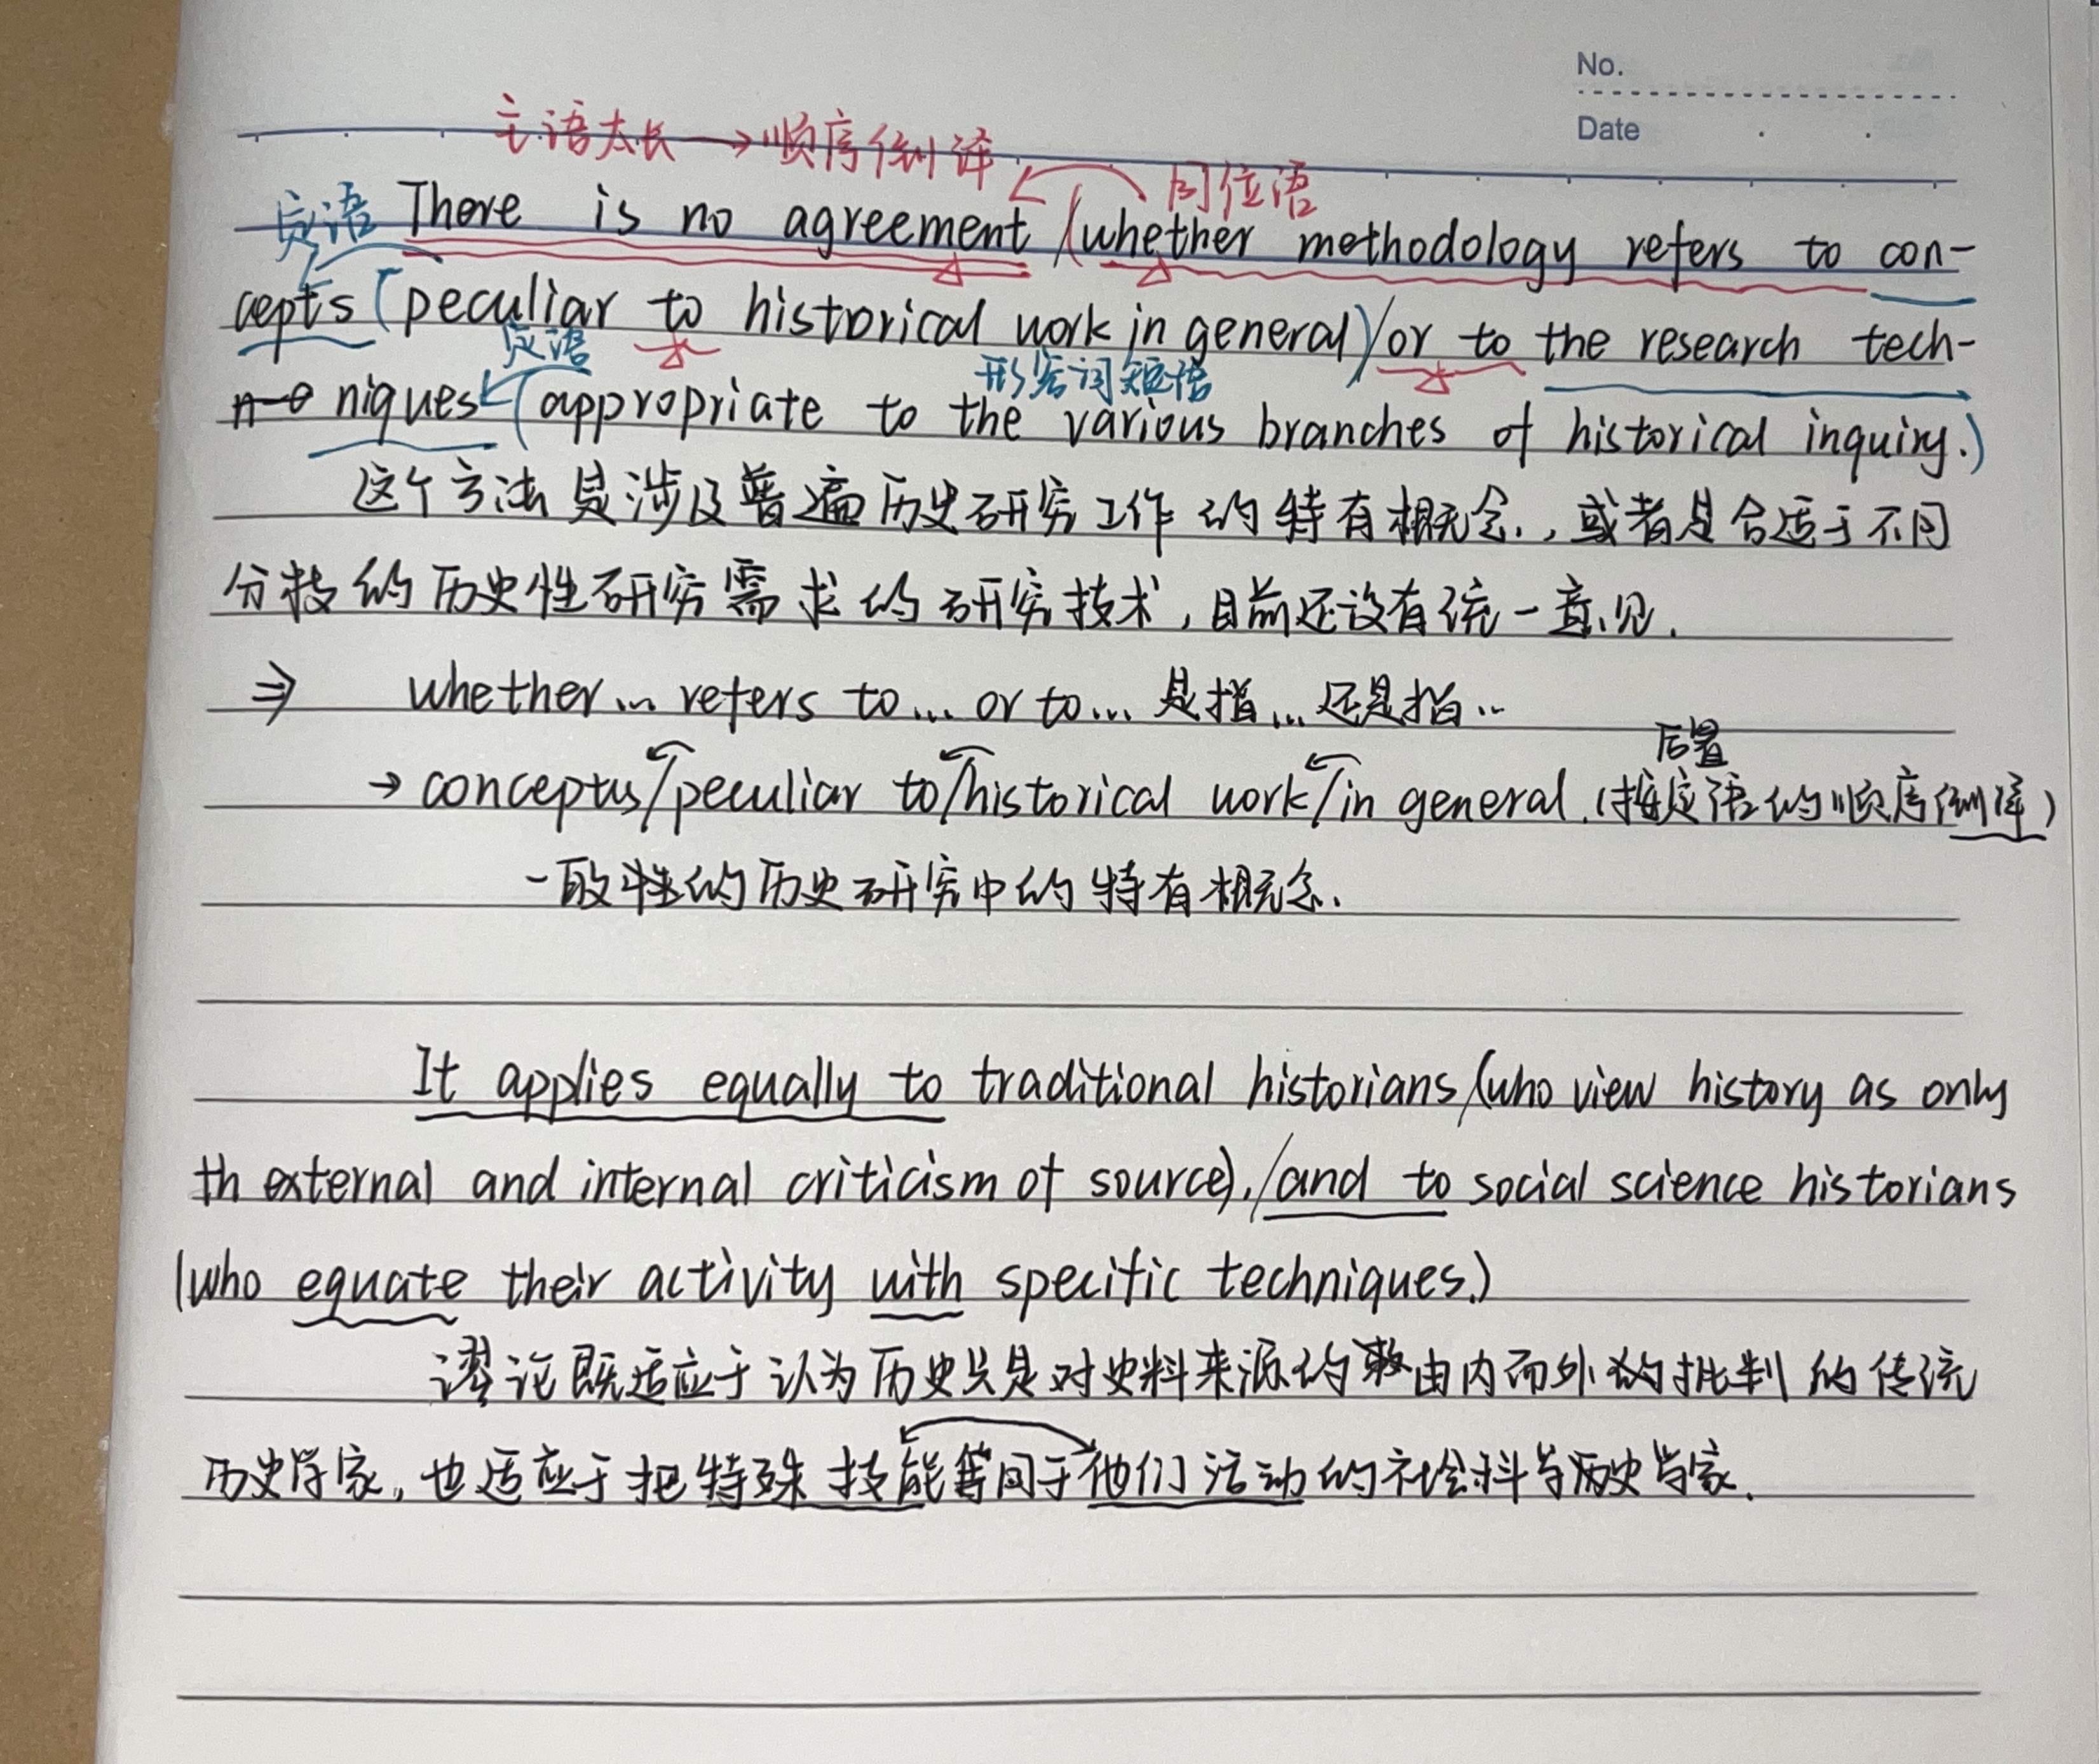 No.
Date
主语太长→顺序倒译
同位语
定语
There is no agreement (whether methodology refers to con-
cepts (peculiar to historical work in general)/or to the research tech-
定语
形容词短语
niques (appropriate to the various branches of historical inquiry.)
这个方法是涉及普遍历史研究工作的特有概念,或者是合适于不同
分技的历史性研究需求的研究技术,目前还没有统一意见.
⇒ whether... refers to... or to... 是指... 还是指..
后置
→ conceptus/peculiar to/historical work/in general.(按定语的顺序倒译)
一致性的历史研究中的特有概念.
It applies equally to traditional historians/(who view history as only
th external and internal criticism of source),/and to social science historians
(who equate their activity with specific techniques.)
谬论既适应于认为历史只是对史料来源的由内而外的批判的传统
历史学家,也适应于把特殊技能等同于他们活动的社会科学历史学家.